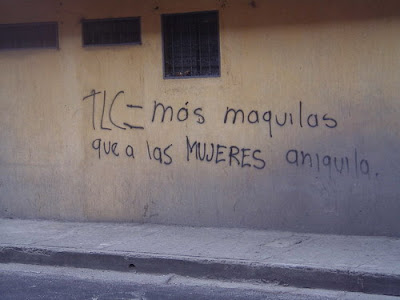 TLC= más maquilas
que a las MUJERES aniquila.